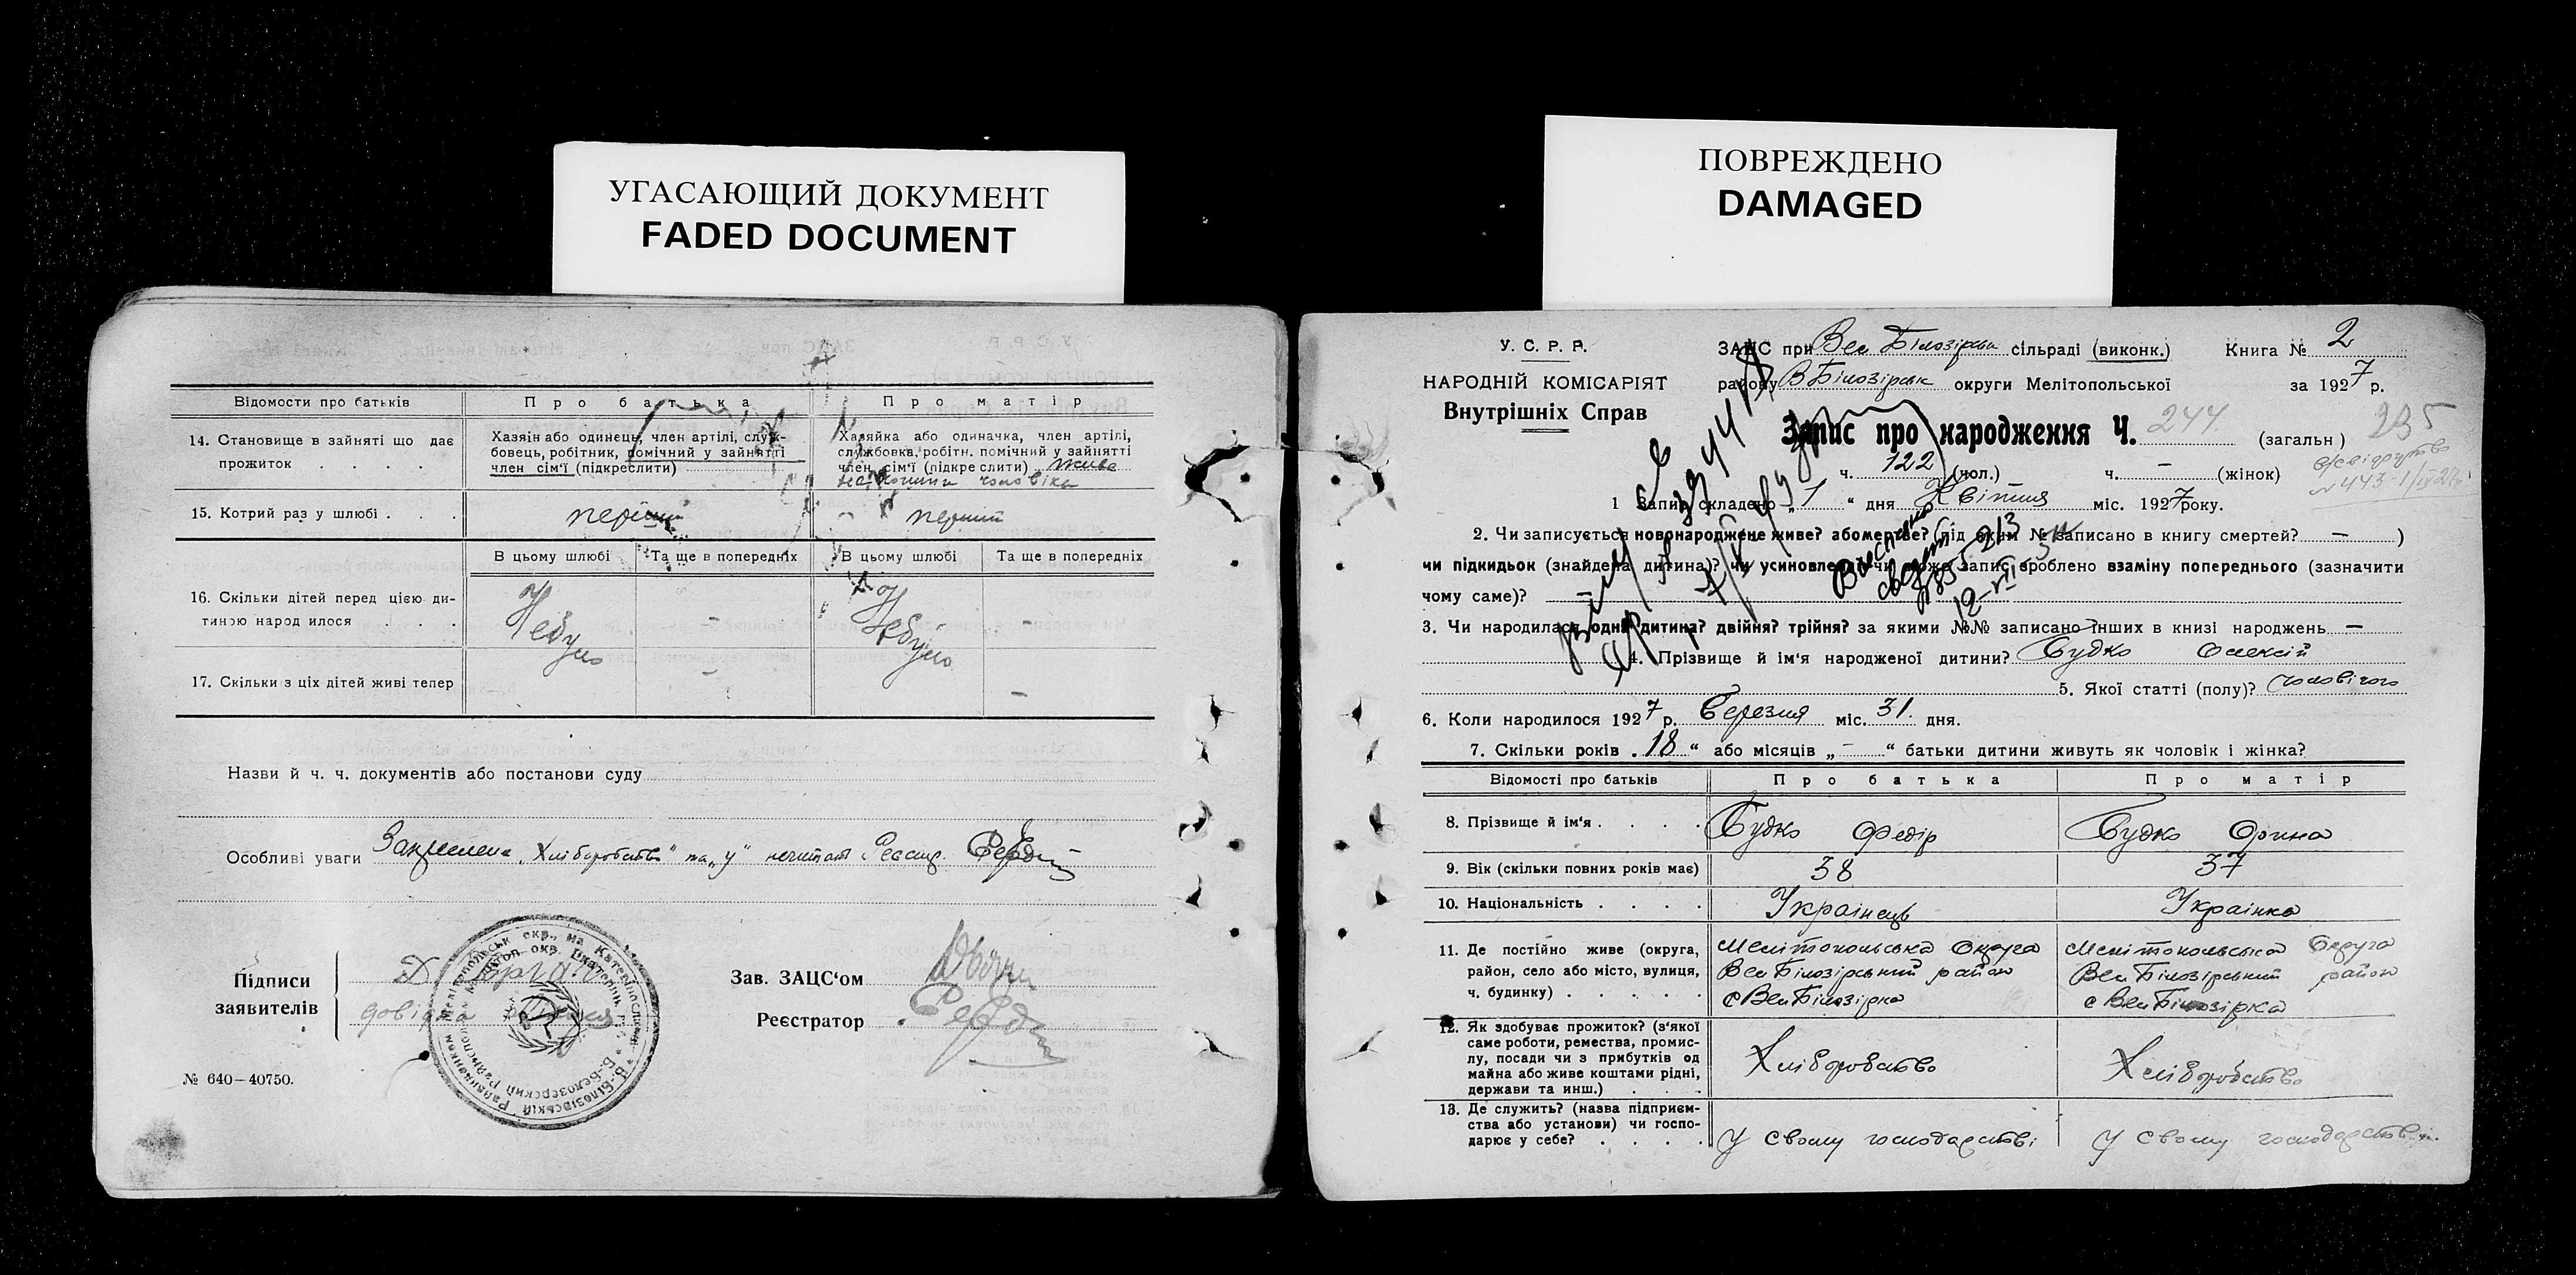 УГАСАЮЩИЙ ДОКУМЕНТ
FADED DOCUMENT
Відомости про батьків
Про батька
Про матір
14. Становище в зайняті що дає прожиток . . . .
Хазяін або одинець, член артілі, служ-
бовець, робітник, помічний у зайнятті
член сім'ї (підкреслити)
Хазяйка або одиначка, член артілі,
службовка, робітн. помічний у зайнятті
член сім'ї (підкреслити) жива
чоловіка
15. Котрий раз у шлюбі . . .
перший
перший
В цьому шлюбі
Та ще в попередніх
В цьому шлюбі
Та ще в попередніх
16. Скільки дітей перед цією ди-
тиною народилося . . .
Небуло
–
Небуло
–
17. Скільки з ціх дітей живі тепер
–
–
Назви й ч. ч. документів або постанови суду
Особливі уваги
„Хліборобство" та „у"
Підписи
заявителів
Зав. ЗАЦС'ом
Реєстратор
№ 640–40750.
ПОВРЕЖДЕНО
DAMAGED
У. С. Р. Р.
НАРОДНІЙ КОМІСАРІЯТ
Внутрішніх Справ
ЗАЦС при Вел Білозірськ сільраді (виконк.) Книга № 2
району В Білозірськ округи Мелітопольської за 1927 р.
Запис про народження Ч. 244 (загальн) 235
ч. 122 (чол.) ч. – (жінок)
1 Запис складено „1" дня Квітня міс. 1927 року.
2. Чи записується новонароджене живе? або мертве? (під яким № записано в книгу смертей? – )
чи підкидьок (знайдена дитина)? чи усиновлена? чи може запис зроблено взаміну попереднього (зазначити
чому саме)? –
3. Чи народилася одна дитина? двійня? трійня? за якими №№ записано інших в книзі народжень –
4. Прізвище й ім'я народженої дитини? Будко Олексій
5. Якої статті (полу)? чоловічого
6. Коли народилося 1927 р. Березня міс. 31. дня.
7. Скільки років „18" або місяців „–" батьки дитини живуть як чоловік і жінка?
Відомості про батьків
Про батька
Про матір
8. Прізвище й ім'я . . . .
Будко Федір
Будко Орина
9. Вік (скільки повних років має)
38
37
10. Національність . . . .
Українець
Українка
11. Де постійно живе (округа,
район, село або місто, вулиця,
ч. будинку) . . . . .
Мелітопольська Округа
Вел Білозірський район
с Вел Білозірка
Мелітопольська Округа
Вел Білозірський район
с Вел Білозірка
12. Як здобуває прожиток? (з'якої
саме роботи, ремества, промис-
лу, посади чи з прибутків од
майна або живе коштами рідні,
держави та инш.) . . .
Хліборобство
Хліборобство
13. Де служить? (назва підприєм-
ства або установи) чи госпо-
дарює у себе? . . . .
У своему господарстві
У своему господарстві